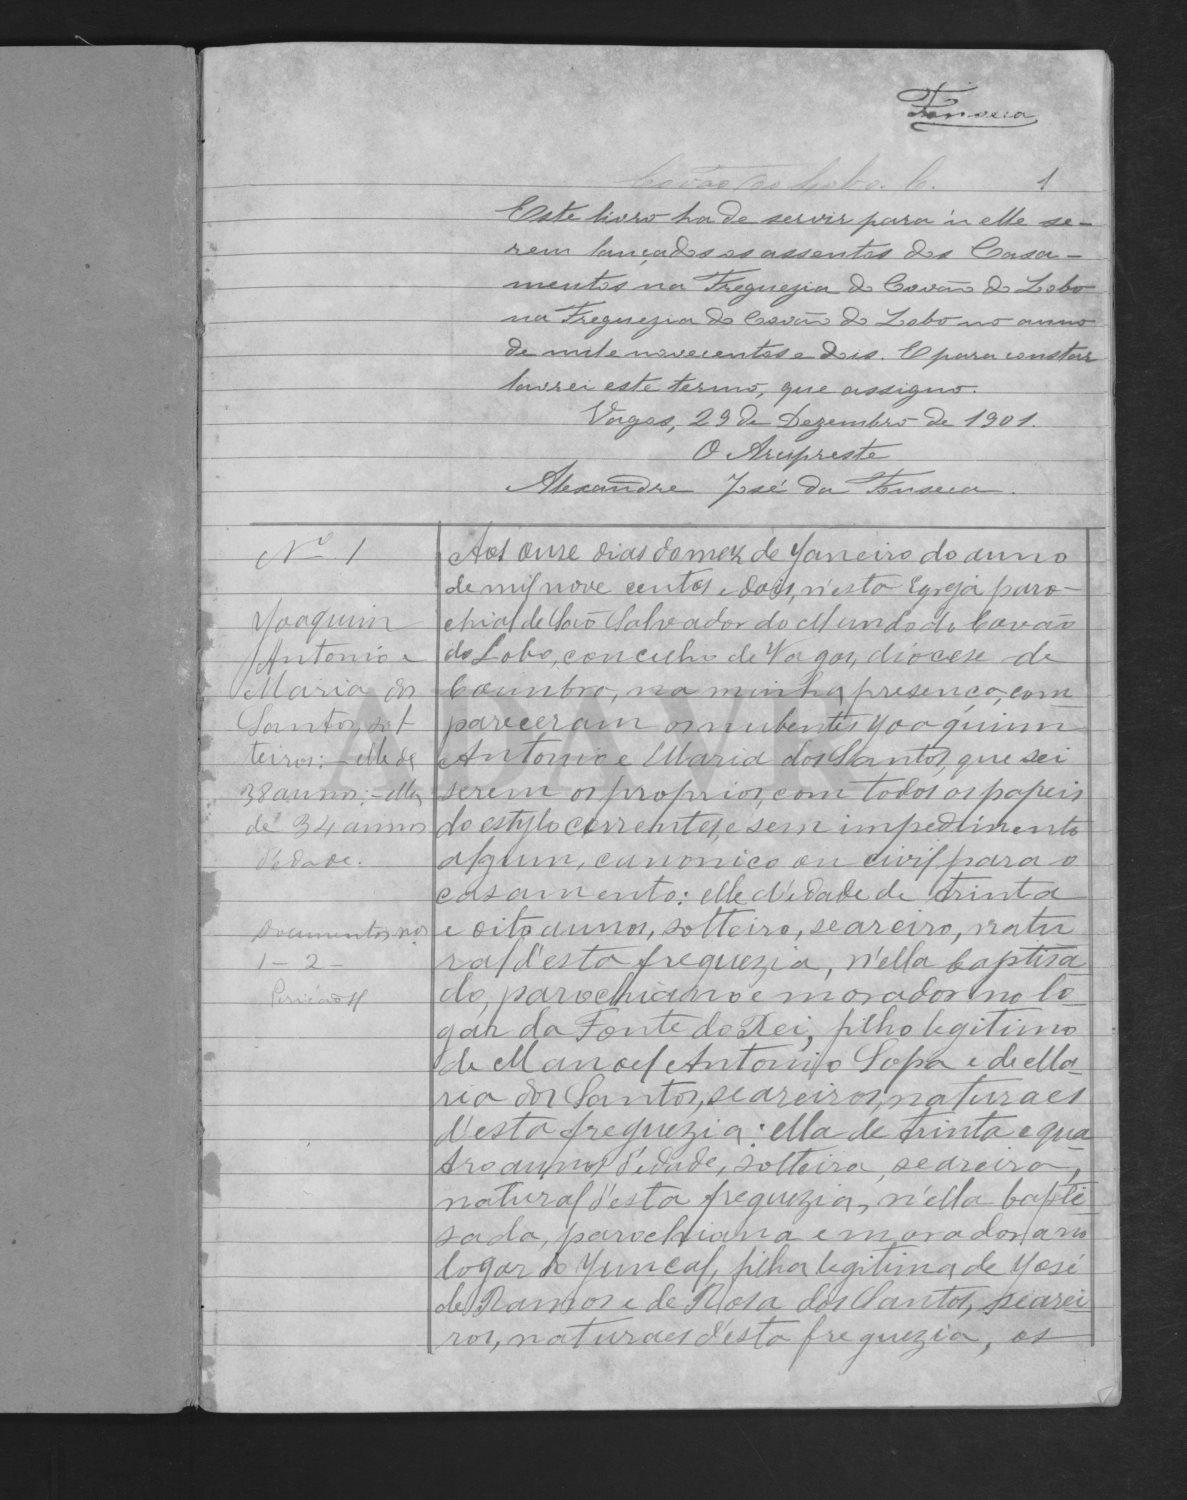 Fonseca
Covão do Lobo. C. 1
Este livro ha de servir para n'elle se-
rem lançados os assentos dos Casa-
mentos na Freguezia do Covão do Lobo
na Freguezia do Covão do Lobo no anno
de mil e novecentos e dois. E para constar
lavrei este termo, que assigno.
Vagos, 29 de Dezembro de 1901.
O Arcipreste
Alexandre José da Fonseca.
Nº 1
Joaquim
Antonio e
Maria dos
Santos, sol-
teiros: - elle de
38 annos; - ella
de 34 annos
d'edade.
Documentos nos
1 - 2 -
Aos onze dias do mez de Janeiro do anno
de mil nove centos e dois, n'esta Egreja paro-
chial de São Salvador do Mundo do Covão
do Lobo, concelho de Vagos, diocese de
Coimbra, na minha presença, com
pareceram os nubentes Joaquim
Antonio e Maria dos Santos, que sei
serem os proprios, com todos os papeis
do estylo correntes, e sem impedimento
algum, canonico ou civil para o
casamento: elle d'edade de trinta
e oito annos, solteiro, seareiro, natu
ral d'esta freguezia, n'ella baptisa
do, parochiano e morador no lo-
gar da Fonte do Rei, filho legitimo
de Manoel Antonio Sopa e de Ma-
ria dos Santos, seareiros, naturaes
d'esta freguezia: ella de trinta e qua
tro annos d'edade, solteira, seareira,
natural d'esta freguezia, n'ella bapti
sada, parochiana e moradora no
logar do Juncal, filha legitima de José
de Ramos e de Rosa dos Santos, searei
ros, naturaes d'esta freguezia, os
ADAVR